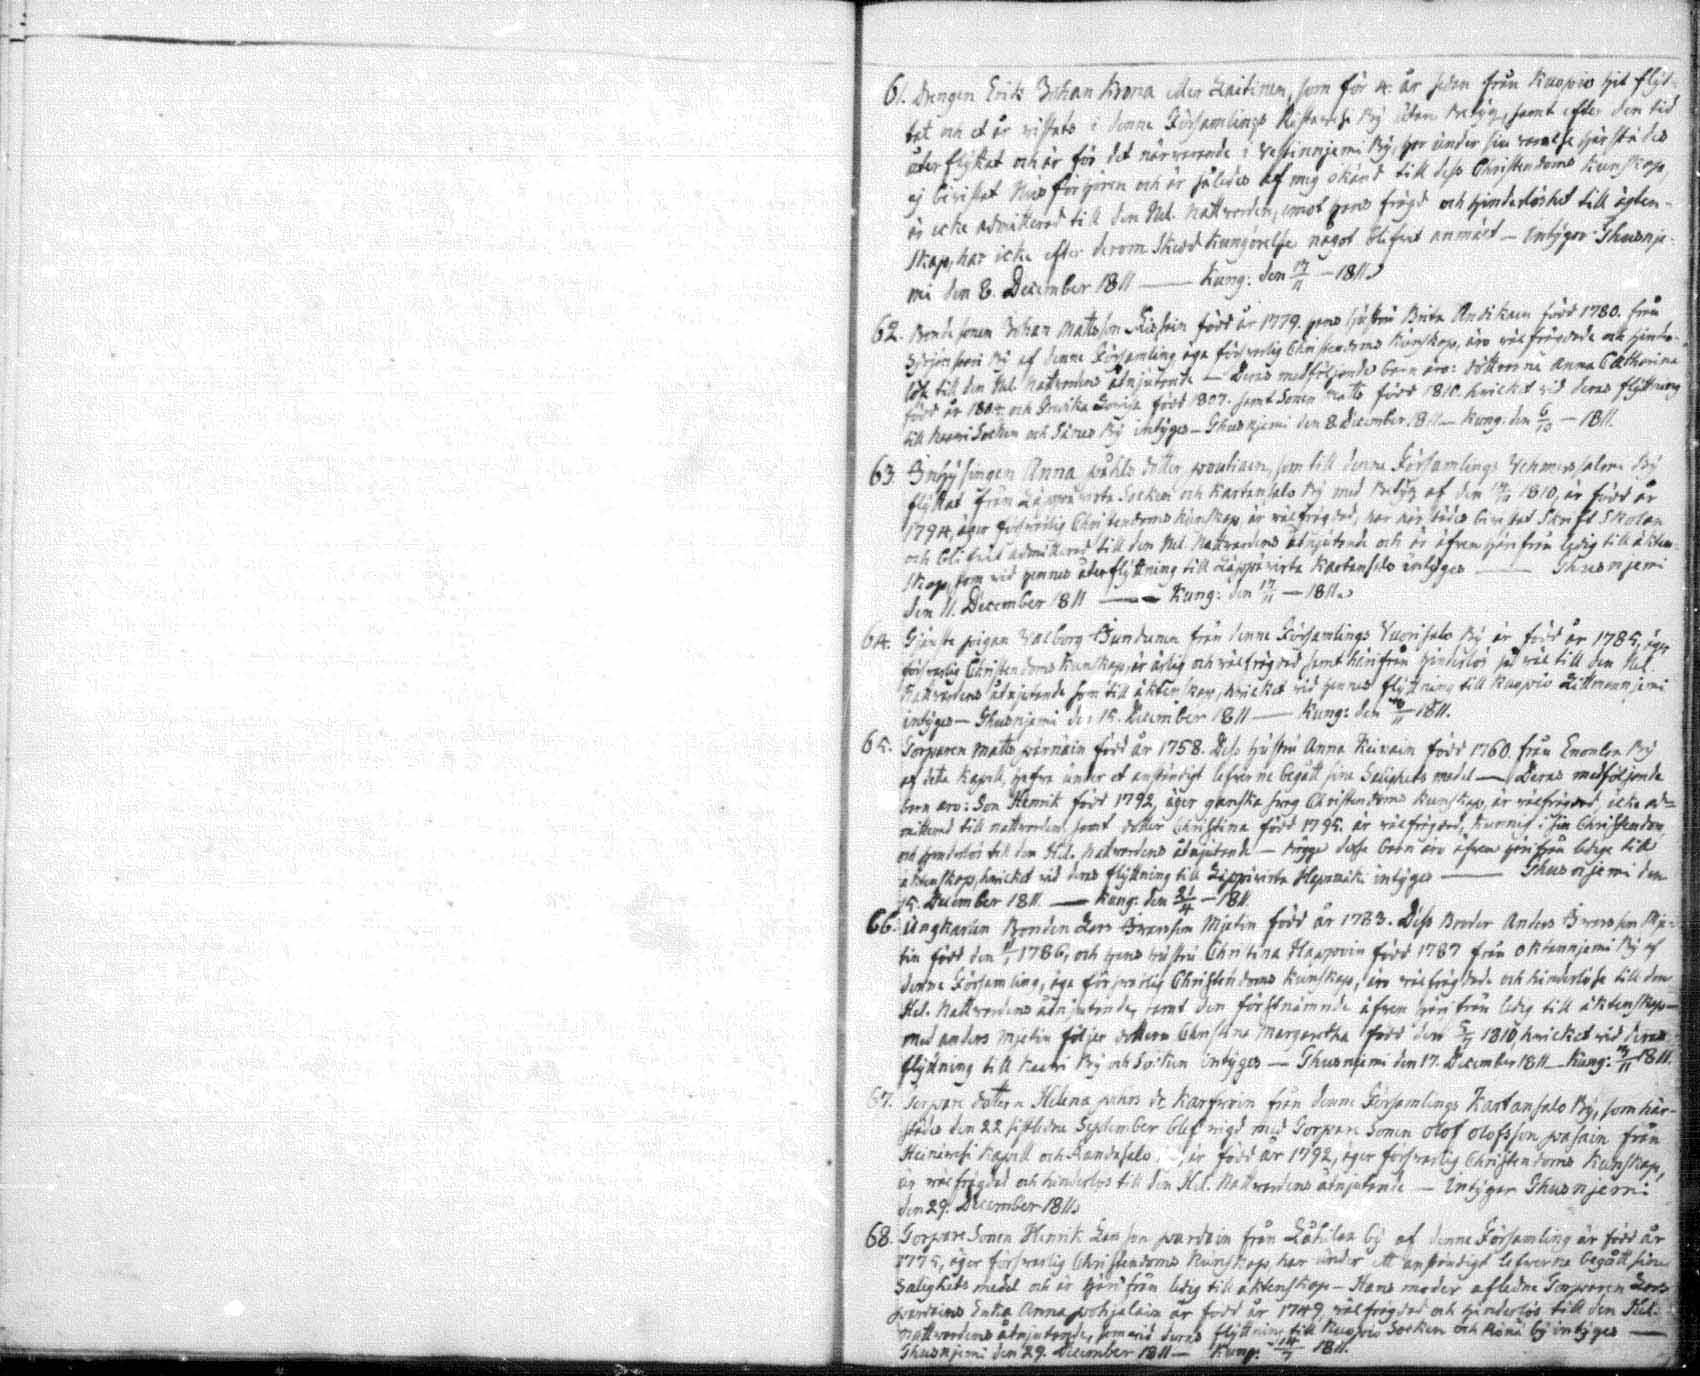 61. Drengen Erik Johan Krona eller Laitinen, som för 4. år sedan från Kuopio hit flyt-
tat och et år vistats i denne Församlings By utan Betyg, samt efter den tid
åter flyttat och är för det närvarande i Vessinnjemi By, har under sin varelse härstädes
ej bevistat Läsförhören och är således af mig okänd till dess Christendoms Kunskap,
är icke admitterad till den Hel. Nattvarden, emot hans frägd och hinderlöshet till ägten-
skap, har icke efter derom skedd Kungörelse något blifvit anmält — Intygar Thusnje-
mi den 8. December 1811 — Kung: den 17/11 — 1811.
62. Bondesonen Johan Mattsson född år 1779. hans hustru Brita Andikain född 1780. från
By af denne Församling äga försvarlig Christendoms Kunskap, äro välfrägdade och hinder-
löse till den Hel. Nattvardens åtnjutande — Deras medföljande barn äro: döttrarne Anna Catharina
född år 180 och Lovisa född 1807. samt Sonen Matts född 1810. hwilket vid deras flyttning
till Kaavi Socken och By intyges — Thusnjemi den 8 December 1811 — Kung: den 6/10 — 1811.
63. Inhysingen Anna Påhls dotter, som till denne Församlings Vehmersalmi By
flyttat från Läppävirta Socken och Kartansalo By med Betyg af den 1810, är född år
1794, äger försvarlig Christendoms Kunskap, är välfrägdad, har här städes bevistat Skrift Skolan
och blifvit admitterad till den Hel. Nattvardens åtnjutande och är äfven härifrån ledig till äkten-
skap, som vid hennes återflyttning till Läppävirta Kartansalo intyges — Thusnjemi
den 11. December 1811 — Kung: den 17/11 — 1811.
64. Tjenste pigan Valborg från denne Församlings Vuorisalo By är född år 1785, äger
försvarlig Christendoms Kunskap, är ärlig och välfrägdad samt härifrån hinderlös så väl till den Hel.
Nattvardens åtnjutande som till äktenskap, hwilket vid hennes flyttning till Kuopio
intyges — Thusnjemi den 15. December 1811 — Kung: den 1811.
65. Torparen Matts född år 1758. Dess hustru Anna född 1760. från Enonlax By
af detta Kapell, hafva under et anständigt lefverne begått sina Salighets medel — Deras medföljande
barn äro: Son Henrik född 1792, äger ganska swag Christendoms Kunskap, är välfrägdad, icke ad-
mitterad till nattvarden, samt dotter Christina född 1795. är välfrägdad, kunnig i sin Christendom,
och hinderlös till den Hel. Nattvardens åtnjutande — Bägge desse barn äro äfven härifrån ledige till
äktenskap, hwilket vid deras flyttning till Läppävirta intyges — Thusnjemi den
15. December 1811. — Kung: den 21/4 — 1811.
66. Ungkarlen Bonden Lars Ivarsson Mjetin född år 1783. Dess Broder Anders Ivarsson Mje-
tin född den 1786, och hans hustru Christina Happoin född 1787 från Oktannjemi By af
denne Församling, äga försvarlig Christendoms Kunskap, äro välfrägdade och hinderlöse till den
Hel. Nattvardens åtnjutande, samt den förstnämnde äfven härifrån ledig till äktenskap —
med anders Mjetin följer dottern Christina Margaretha född den 1810, hwilket vid deras
flyttning till Kaavi By och Socken intyges — Thusnjemi den 17. December 1811 — Kung: 1811.
67. Torpare dottern Helena från denne Församlings Kartansalo By, som här-
städes den 22 sistledne September blef wigd med Torpare Sonen Olof Olofsson från
Heinävesi Kapell och Kandasalo, är född år 1792, äger försvarlig Christendoms Kunskap,
är välfrägdad och hinderlös till den Hel. Nattvardens åtnjutande — Intygar Thusnjemi
den 29. December 1811.
68. Torpare Sonen Henrik Larsson från by af denne Församling är född år
1775, äger försvarlig Christendoms Kunskap, har under ett anständigt lefverne begått sina
Salighets medel och är härifrån ledig till äktenskap — Hans moder afledne Torparen Lars
Enka Anna Pohjalain är född år 1749, välfrägdad och hinderlös till den Hel.
Nattvardens åtnjutande, som vid deras flyttning till Kuopio Socken och by intyges —
Thusnjemi den 29. December 1811 — Kung: 14/7 1811.